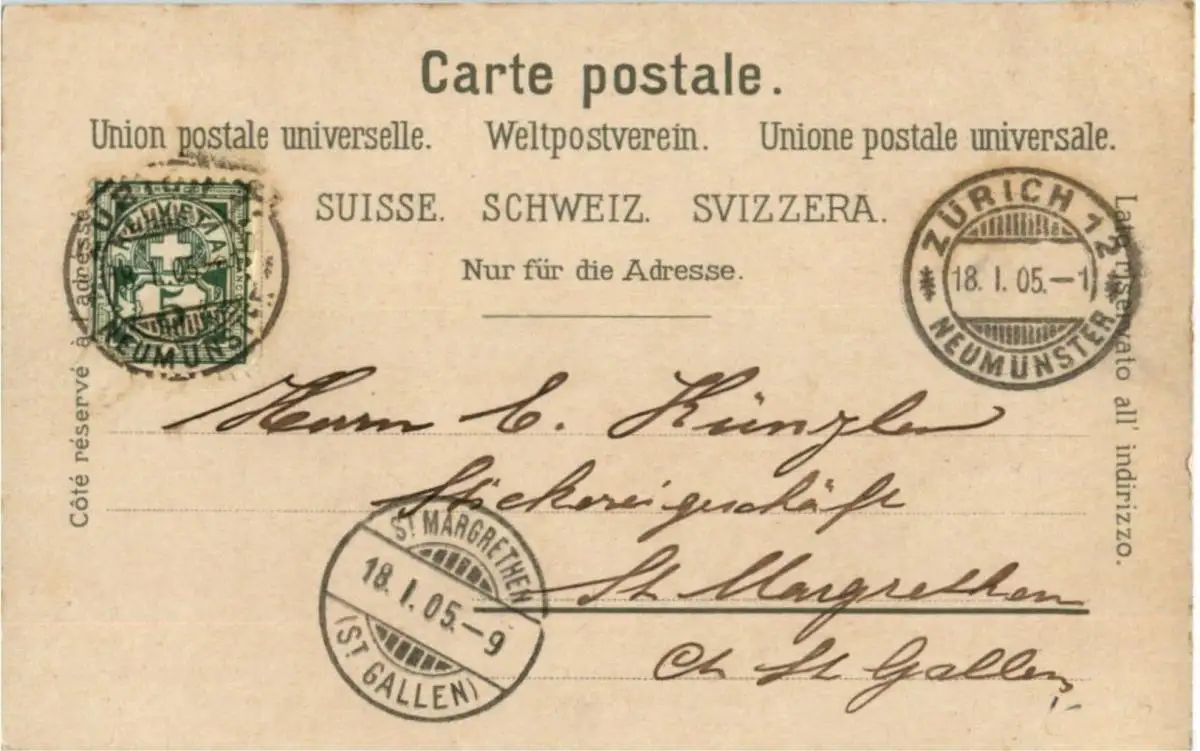 Carte postale.
Union postale universelle. Weltpostverein. Unione postale universale.
SUISSE. SCHWEIZ. SVIZZERA.
Nur für die Adresse.
Côté réservé à l'adresse
HELVETIA
5
NEUMÜNSTER
ZÜRICH 12
18. I. 05.–1
NEUMÜNSTER
Lato riservato all' indirizzo.
Herrn E. Künzler
Stickereigeschäft
St. Margrethen
Ct. St. Gallen
ST MARGRETHEN
18. I. 05.–9
(ST GALLEN)